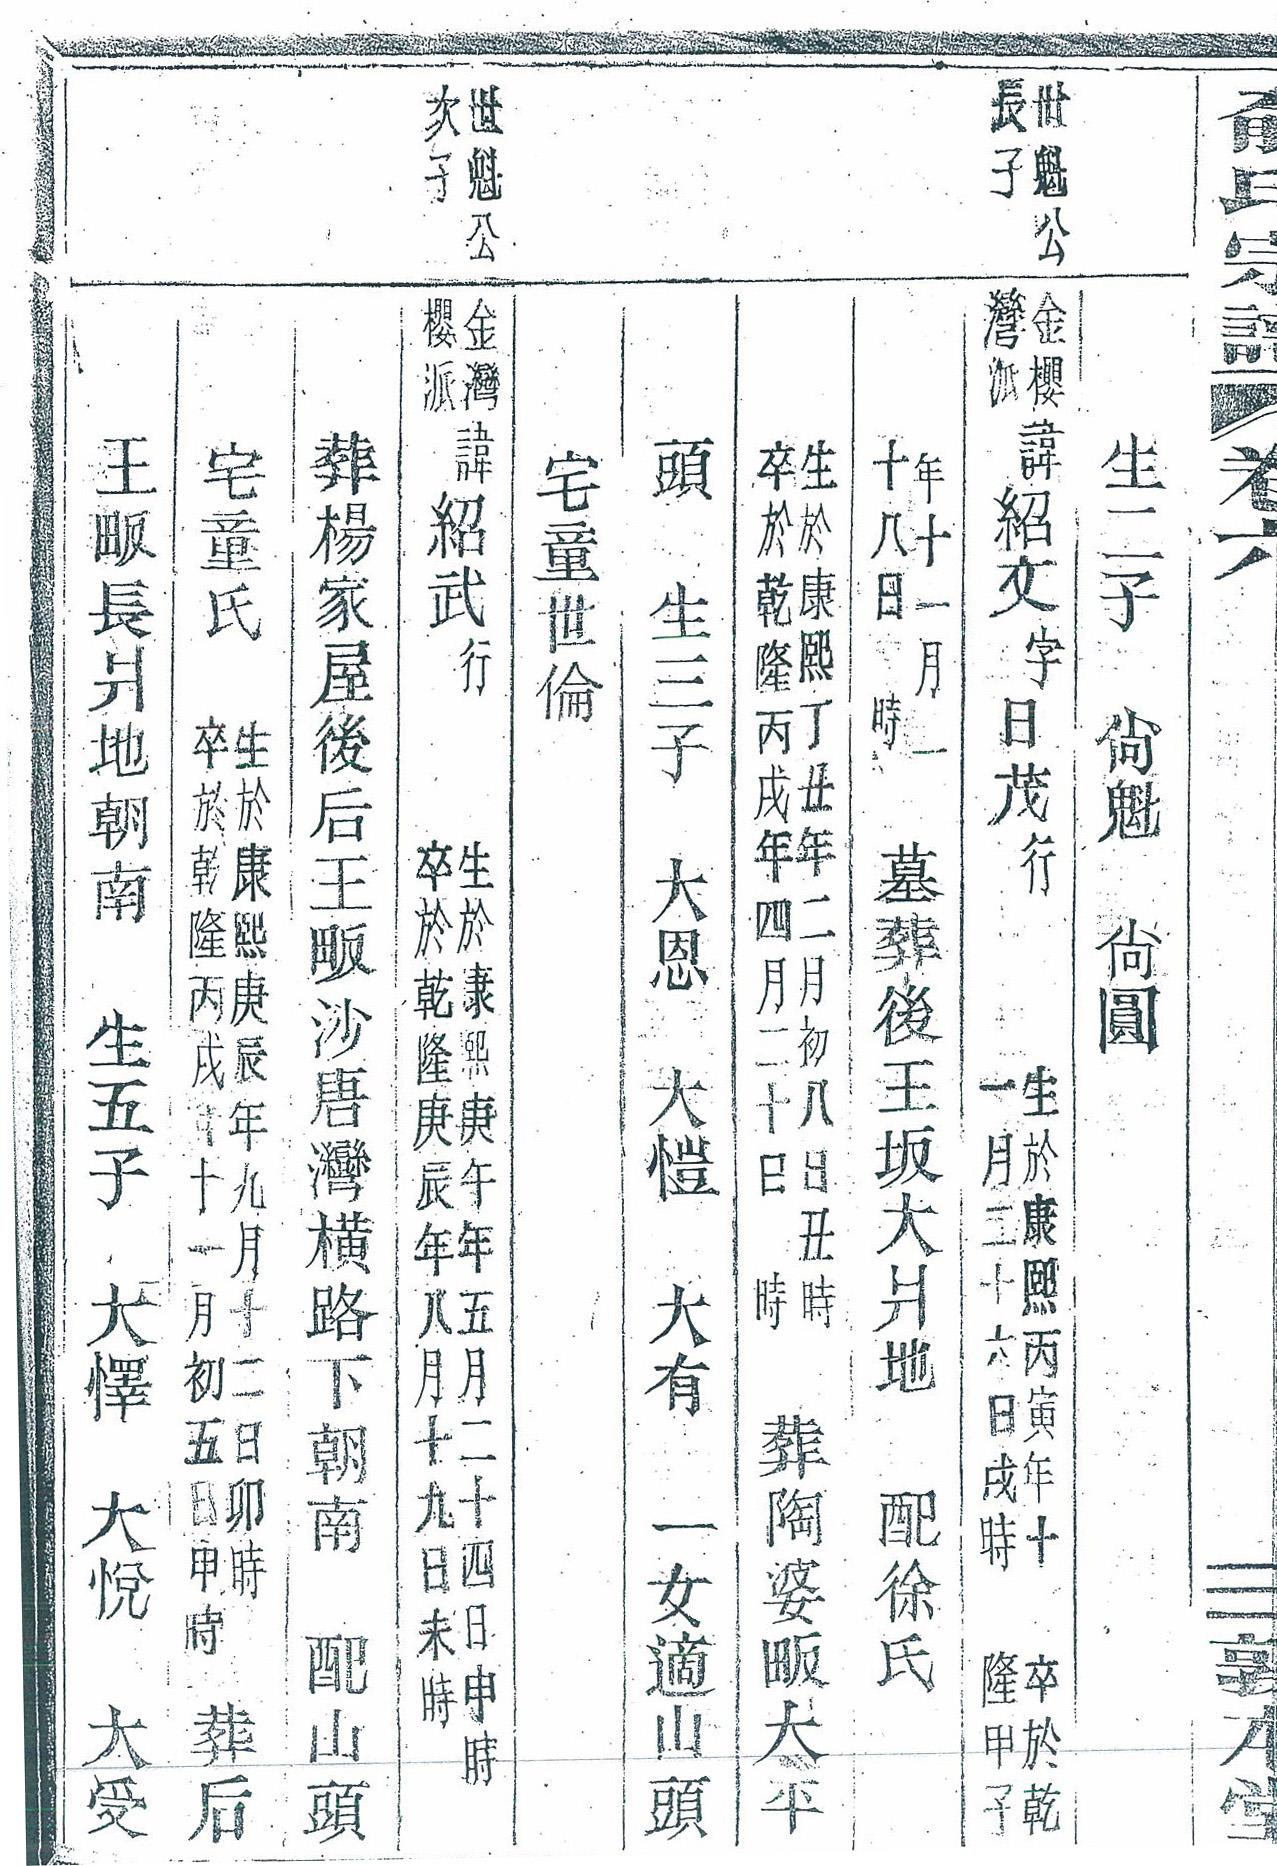 俞氏宗譜 卷六 三 敦本堂
生二子 尙魁 尙圓
世魁公
長子
金櫻
灣派
諱紹文字日茂行
生於康熙丙寅年十
一月二十六日戌時
卒於乾
隆甲子
年十一月一
十八日 時
墓葬後王坂大爿地 配徐氏
生於康熙丁丑年二月初八日丑時
卒於乾隆丙戌年四月二十日 時
葬陶婆畈大平
頭 生三子 大恩 大愷 大有 一女適山頭
宅童世倫
世魁公
次子
金灣
櫻派
諱紹武行
生於康熙庚午年五月二十四日申時
卒於乾隆庚辰年八月十九日未時
葬楊家屋後后王畈沙唐灣橫路下朝南 配山頭
宅童氏
生於康熙庚辰年九月十二日卯時
卒於乾隆丙戌年十一月初五日申時
葬后
王畈長爿地朝南 生五子 大懌 大悅 大受